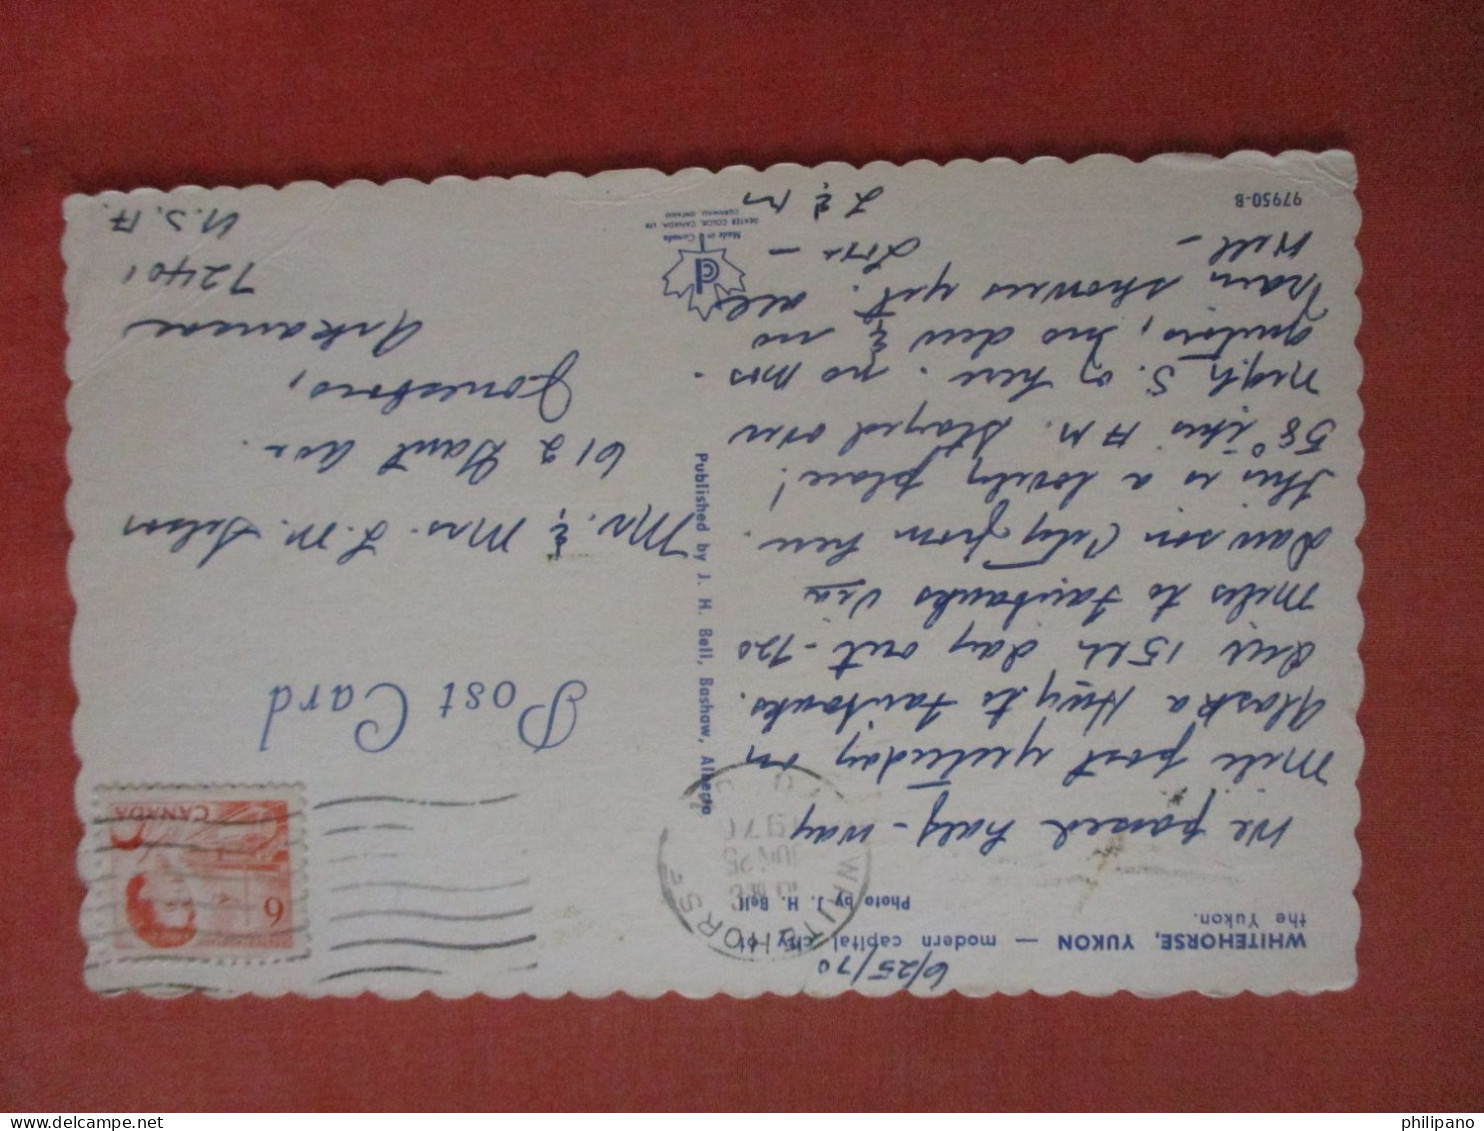 6/25/70
WHITEHORSE, YUKON — modern capital city of
the Yukon.
Photo by J. H. Bell
We passed half-way
Mile post yesterday on
Alaska Hwy to Fairbanks.
Our 15th day out - 720
miles to Fairbanks via
Dawson City from here.
This is a lovely place!
58° this A M. Stayed over
night S. of here. no mos-
quitoes, no dew & no
rain showers yet. all
Well -
Love -
L & M
97950-B
Made in Canada
DEXTER COLOR, CANADA, LTD
CORNWALL, ONTARIO
Published by J. H. Bell, Bashaw, Alberta
WHITEHORSE
JUN 25
1970
CANADA
6
Post Card
Mr. & Mrs. L. M.
612 Gant Ave.
Jonesboro,
Arkansas
72401
U.S.A.
philipano